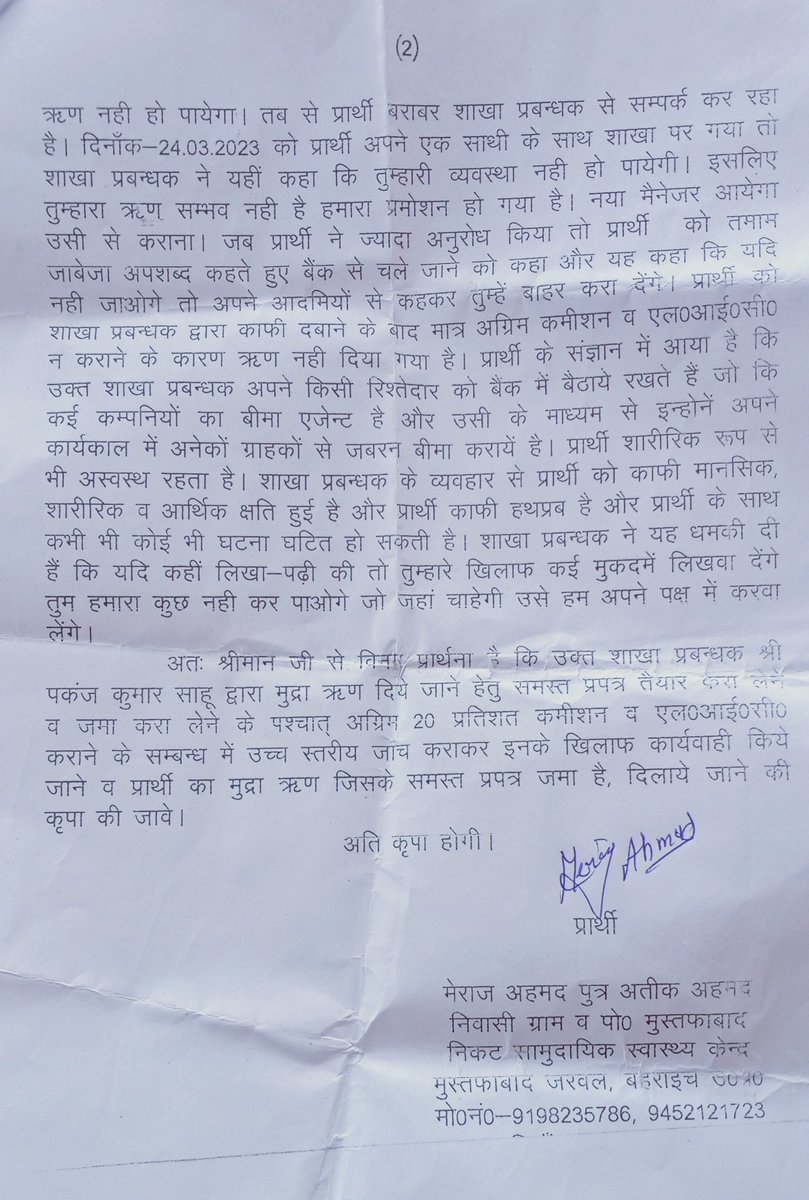 (2)
ऋण नही हो पायेगा। तब से प्रार्थी बराबर शाखा प्रबन्धक से सम्पर्क कर रहा
है। दिनाँक–24.03.2023 को प्रार्थी अपने एक साथी के साथ शाखा पर गया तो
शाखा प्रबन्धक ने यहीं कहा कि तुम्हारी व्यवस्था नही हो पायेगी। इसलिए
तुम्हारा ऋण सम्भव नही है हमारा प्रमोशन हो गया है। नया मैनेजर आयेगा
उसी से कराना। जब प्रार्थी ने ज्यादा अनुरोध किया तो प्रार्थी को तमाम
जाबेजा अपशब्द कहते हुए बैंक से चले जाने को कहा और यह कहा कि यदि
नही जाओगे तो अपने आदमियों से कहकर तुम्हें बाहर करा देंगे। प्रार्थी को
शाखा प्रबन्धक द्वारा काफी दबाने के बाद मात्र अग्रिम कमीशन व एल0आई0सी0
न कराने के कारण ऋण नही दिया गया है। प्रार्थी के संज्ञान में आया है कि
उक्त शाखा प्रबन्धक अपने किसी रिश्तेदार को बैंक में बैठाये रखते हैं जो कि
कई कम्पनियों का बीमा एजेन्ट है और उसी के माध्यम से इन्होनें अपने
कार्यकाल में अनेकों ग्राहकों से जबरन बीमा करायें है। प्रार्थी शारीरिक रूप से
भी अस्वस्थ रहता है। शाखा प्रबन्धक के व्यवहार से प्रार्थी को काफी मानसिक,
शारीरिक व आर्थिक क्षति हुई है और प्रार्थी काफी हथप्रब है और प्रार्थी के साथ
कभी भी कोई भी घटना घटित हो सकती है। शाखा प्रबन्धक ने यह धमकी दी
हैं कि यदि कहीं लिखा–पढ़ी की तो तुम्हारे खिलाफ कई मुकदमें लिखवा देंगे
तुम हमारा कुछ नही कर पाओगे जो जहां चाहेगी उसे हम अपने पक्ष में करवा
लेंगे।
अतः श्रीमान जी से विनम्र प्रार्थना है कि उक्त शाखा प्रबन्धक श्री
पकंज कुमार साहू द्वारा मुद्रा ऋण दिये जाने हेतु समस्त प्रपत्र तैयार करा लेने
व जमा करा लेने के पश्चात् अग्रिम 20 प्रतिशत कमीशन व एल0आई0सी0
कराने के सम्बन्ध में उच्च स्तरीय जांच कराकर इनके खिलाफ कार्यवाही किये
जाने व प्रार्थी का मुद्रा ऋण जिसके समस्त प्रपत्र जमा है, दिलाये जाने की
कृपा की जावे।
अति कृपा होगी।
Ahmad
प्रार्थी
मेराज अहमद पुत्र अतीक अहमद
निवासी ग्राम व पो0 मुस्तफाबाद
निकट सामुदायिक स्वास्थ्य केन्द
मुस्तफाबाद जरवल, बहराइच उ0प्र0
मो0नं0–9198235786, 9452121723